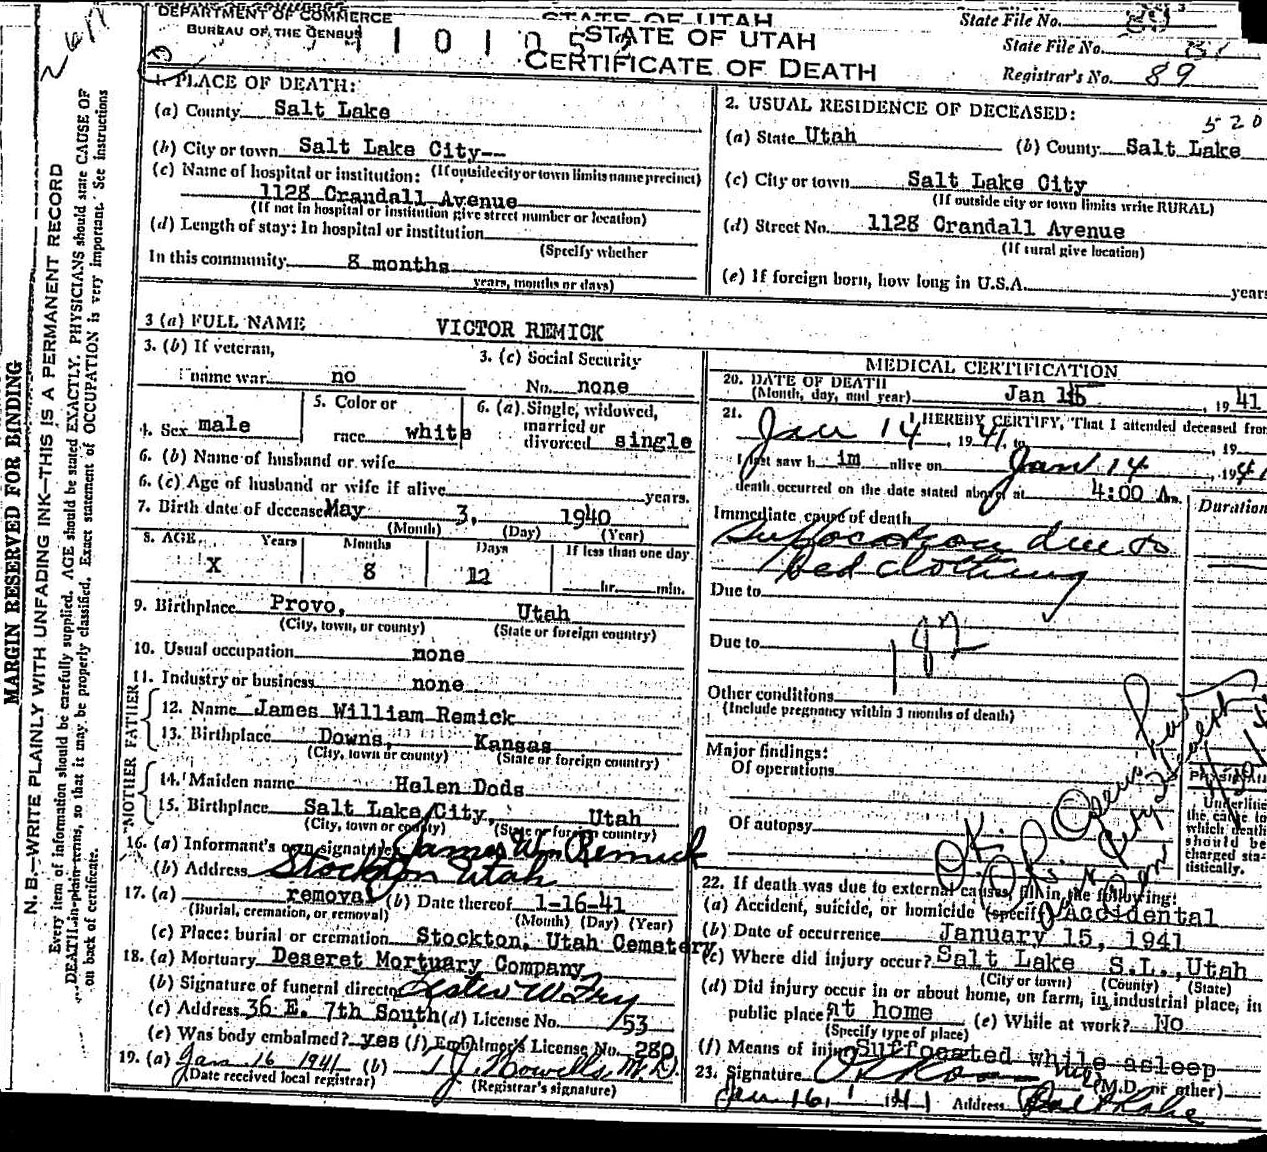 DEPARTMENT OF COMMERCE
BUREAU OF THE CENSUS
STATE OF UTAH
STATE OF UTAH
CERTIFICATE OF DEATH
State File No.
State File No.
Registrar's No. 89
MARGIN RESERVED FOR BINDING
N. B.—WRITE PLAINLY WITH UNFADING INK—THIS IS A PERMANENT RECORD
Every item of information should be carefully supplied. AGE should be stated EXACTLY. PHYSICIANS should state CAUSE OF
DEATH in plain terms, so that it may be properly classified. Exact statement of OCCUPATION is very important. See instructions
on back of certificate.
1. PLACE OF DEATH:
(a) County Salt Lake
(b) City or town Salt Lake City--
(c) Name of hospital or institution: (If outside city or town limits name precinct)
1128 Crandall Avenue
(If not in hospital or institution give street number or location)
(d) Length of stay: In hospital or institution
(Specify whether
In this community 8 months
years, months or days)
2. USUAL RESIDENCE OF DECEASED:
520
(a) State Utah (b) County Salt Lake
(c) City or town Salt Lake City
(If outside city or town limits write RURAL)
(d) Street No. 1128 Crandall Avenue
(If rural give location)
(e) If foreign born, how long in U.S.A. years
3 (a) FULL NAME VICTOR REMICK
3. (b) If veteran,
name war no
3. (c) Social Security
No. none
4. Sex male
5. Color or
race white
6. (a) Single, widowed,
married or
divorced single
6. (b) Name of husband or wife
6. (c) Age of husband or wife if alive years.
7. Birth date of deceased May 3, 1940
(Month) (Day) (Year)
8. AGE Years Months Days If less than one day
X 8 12 hr. min.
9. Birthplace Provo, Utah
(City, town, or county) (State or foreign country)
10. Usual occupation none
11. Industry or business none
FATHER
12. Name James William Remick
13. Birthplace Downs, Kansas
(City, town or county) (State or foreign country)
MOTHER
14. Maiden name Helen Dods
15. Birthplace Salt Lake City, Utah
(City, town or county) (State or foreign country)
16. (a) Informant's own signature James Wm Remick
(b) Address Stockton Utah
17. (a) removal (b) Date thereof 1-16-41
(Burial, cremation, or removal) (Month) (Day) (Year)
(c) Place: burial or cremation Stockton, Utah Cemetery
18. (a) Mortuary Deseret Mortuary Company
(b) Signature of funeral director
(c) Address 36 E. 7th South (d) License No. 153
(e) Was body embalmed? yes (f) Embalmer's License No. 280
19. (a) Jan 16 1941 (b) M.D.
(Date received local registrar) (Registrar's signature)
MEDICAL CERTIFICATION
20. DATE OF DEATH
(Month, day, and year) Jan 15, 1941
21. I HEREBY CERTIFY, That I attended deceased from
Jan 14, 1941, to , 19
I last saw h im alive on Jan 14, 1941
death occurred on the date stated above, at 4:00 A m.
Duration
Immediate cause of death
Suffocation due to
bed clothing
Due to
Due to 182
Other conditions
(Include pregnancy within 3 months of death)
Major findings:
Of operations
Of autopsy
Underline
the cause to
which death
should be
charged sta-
tistically.
22. If death was due to external causes, fill in the following:
(a) Accident, suicide, or homicide (specify) Accidental
(b) Date of occurrence January 15, 1941
(c) Where did injury occur? Salt Lake S.L., Utah
(City or town) (County) (State)
(d) Did injury occur in or about home, on farm, in industrial place, in
public place? at home (e) While at work? No
(Specify type of place)
(f) Means of injury Suffocated while asleep
23. Signature (M.D. or other)
Jan 16, 1941 Address Salt Lake